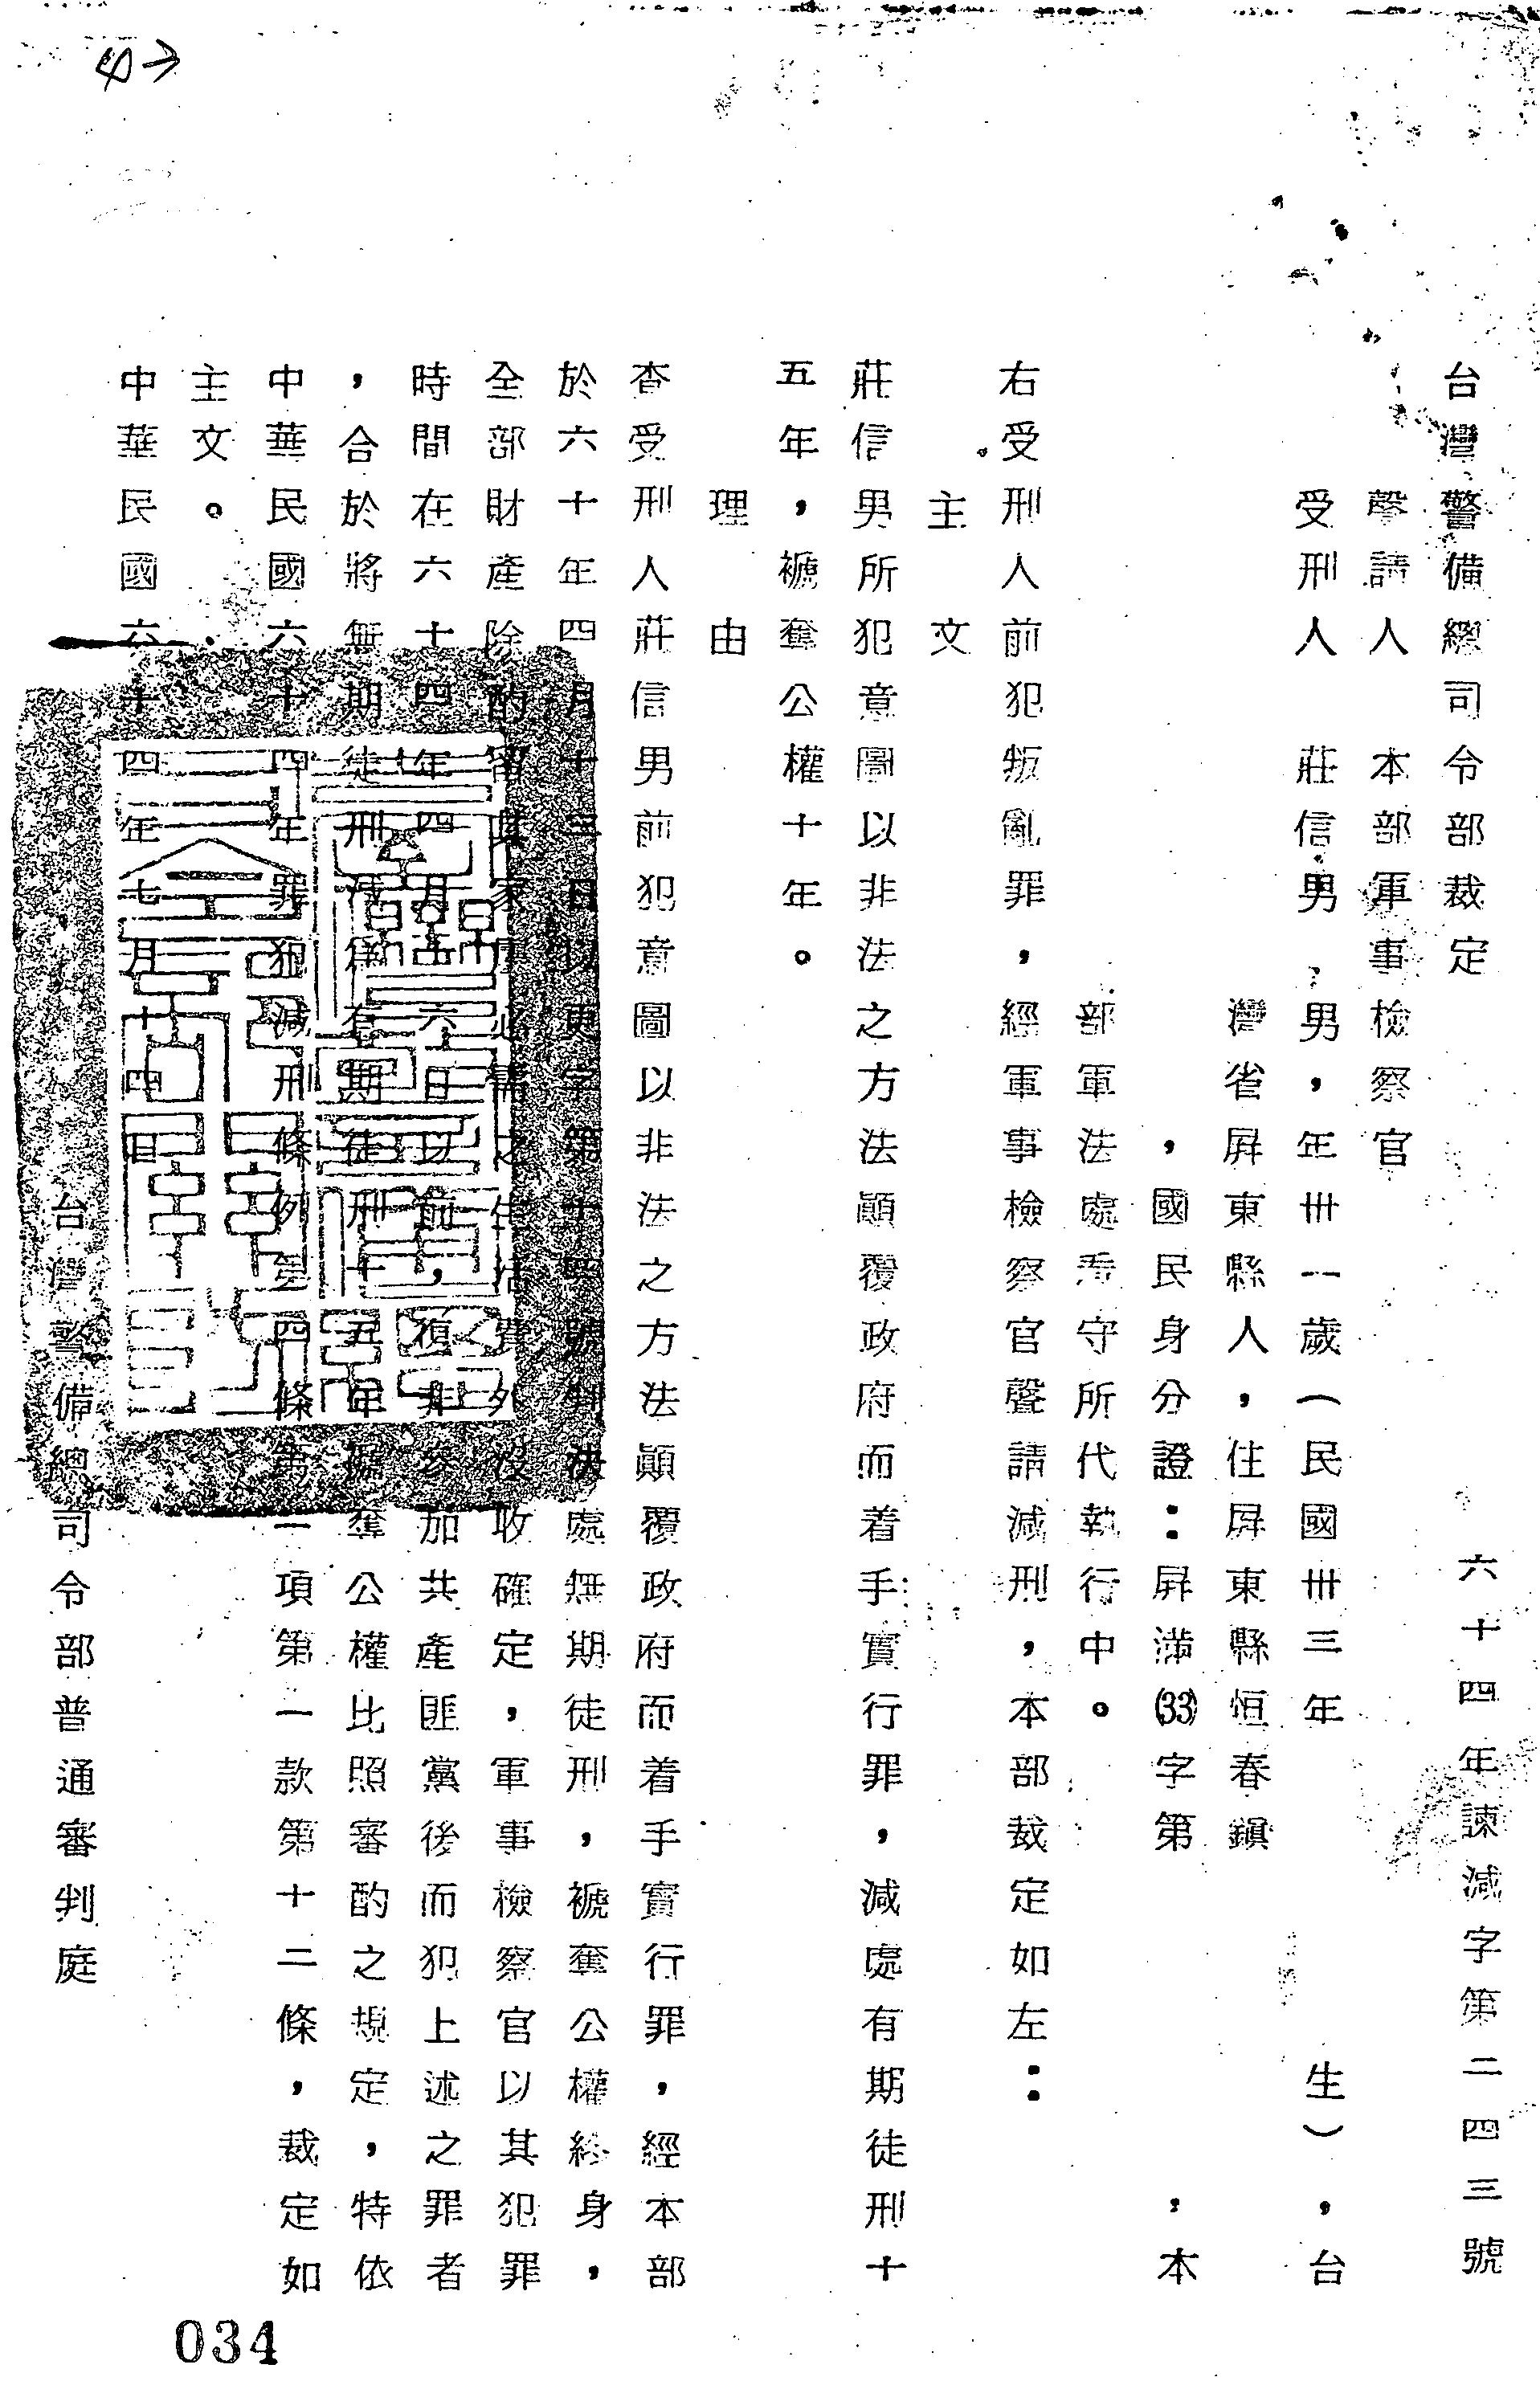 台灣警備總司令部裁定 六十四年諫減字第二四三號
聲請人 本部軍事檢察官
受刑人 莊信男,男,年卅一歲(民國卅三年 生),台
灣省屏東縣人,住屏東縣恒春鎮
,國民身分證:屏滿(33)字第 ,本
部軍法處看守所代執行中。
右受刑人前犯叛亂罪,經軍事檢察官聲請減刑,本部裁定如左:
主文
莊信男所犯意圖以非法之方法顛覆政府而着手實行罪,減處有期徒刑十
五年,褫奪公權十年。
理由
查受刑人莊信男前犯意圖以非法之方法顛覆政府而着手實行罪,經本部
於六十年四月十三日以更字第十四號判決處無期徒刑,褫奪公權終身,
全部財產除酌留其家屬必需之生活費外沒收確定,軍事檢察官以其犯罪
時間在六十四年四月十六日以前,復非參加共產匪黨後而犯上述之罪者
,合於將無期徒刑減為有期徒刑十五年褫奪公權比照審酌之規定,特依
中華民國六十四年罪犯減刑條例第四條第一項第一款第十二條,裁定如
主文。
中華民國六十四年七月十四日
台灣警備總司令部普通審判庭
034